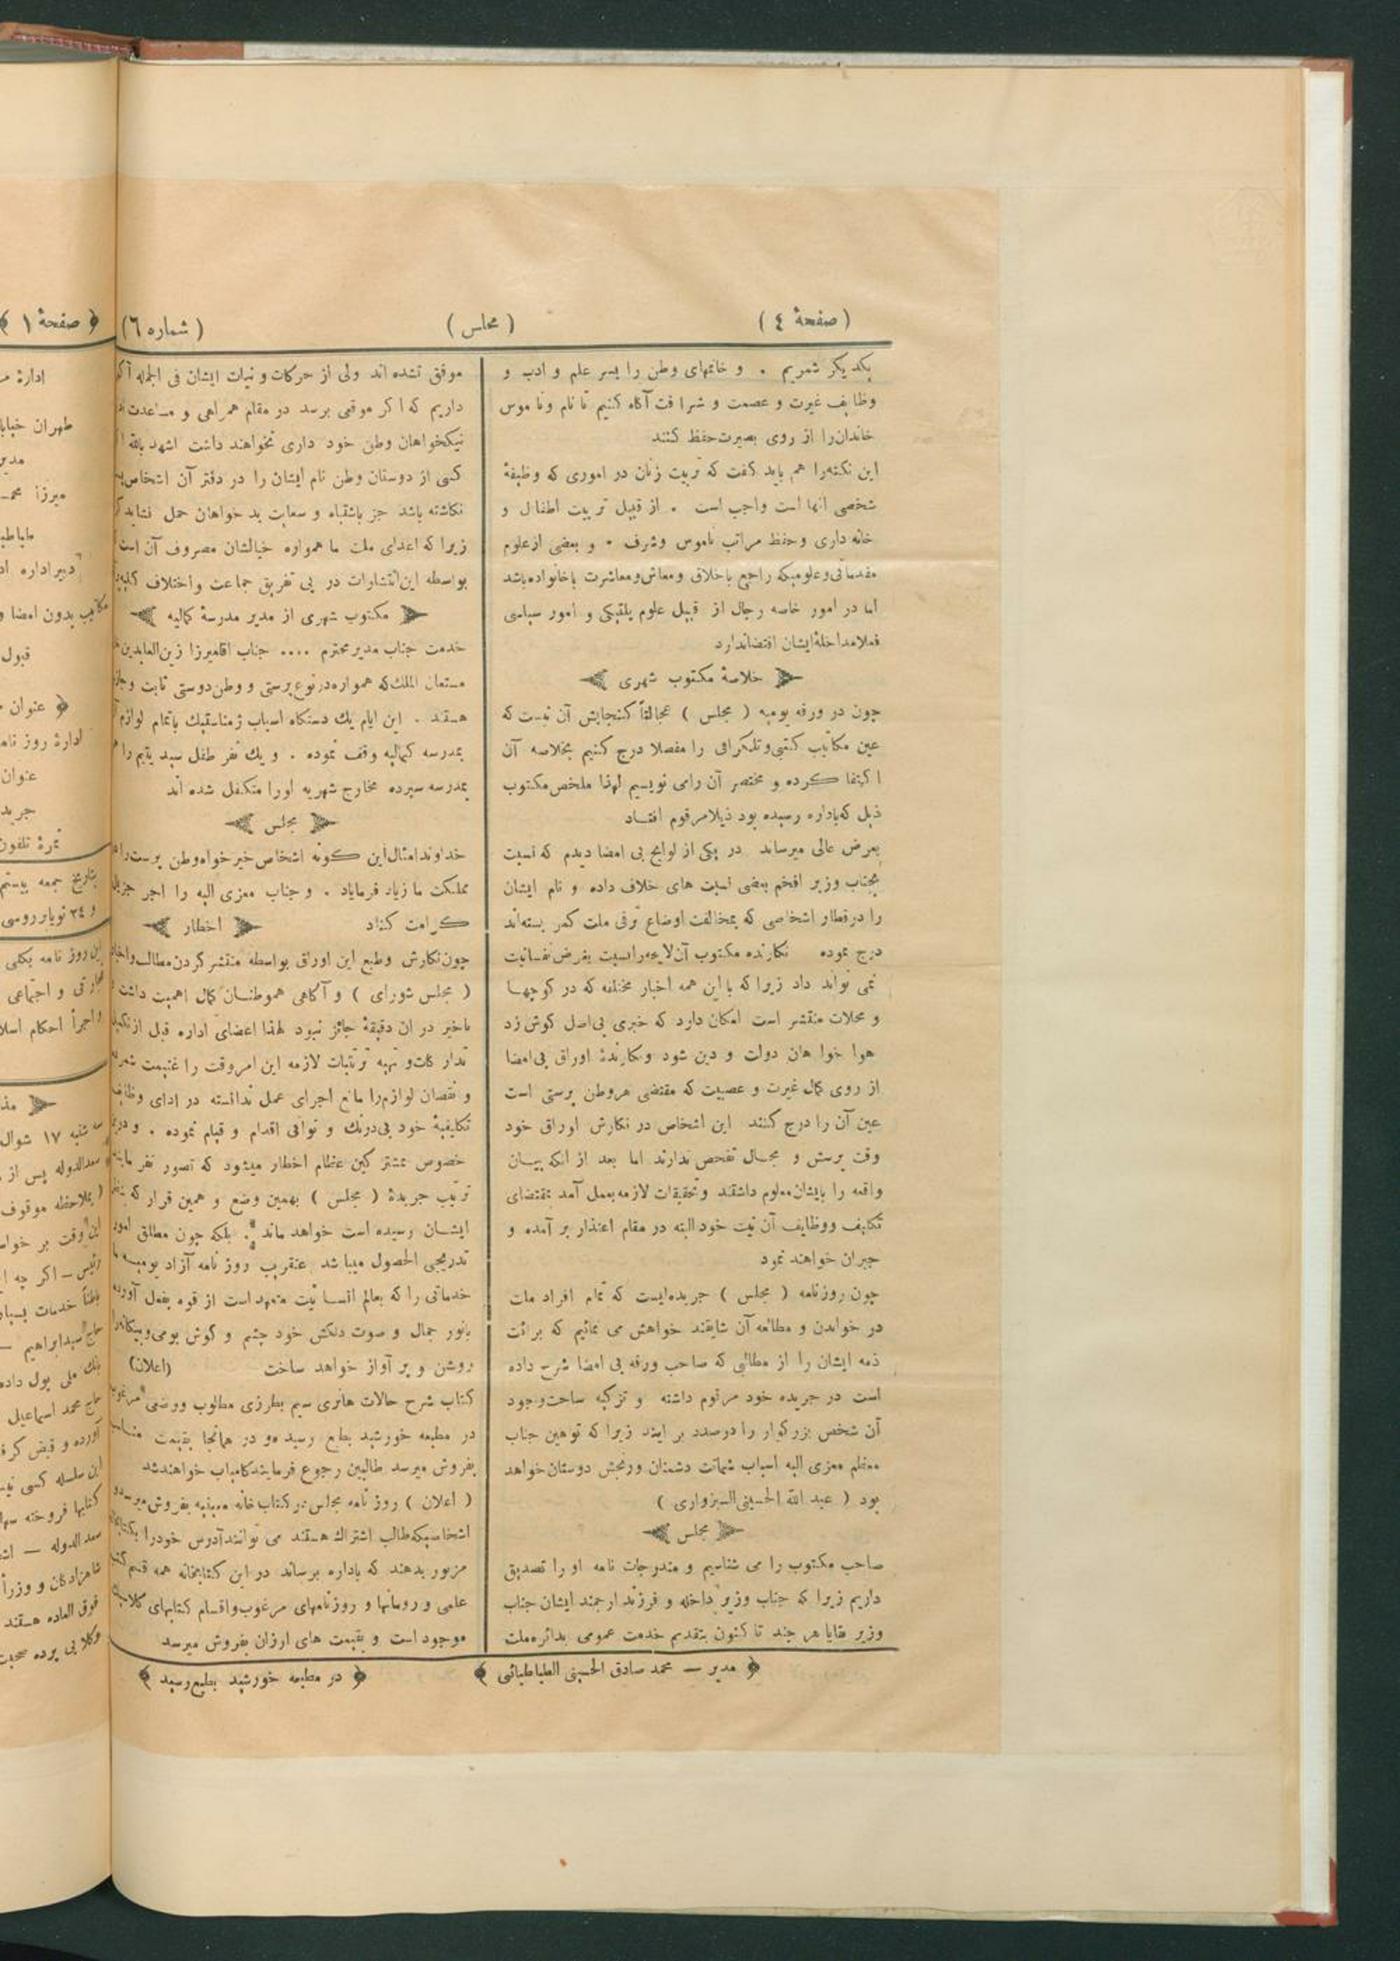 (صفحهٔ ٤)
(مجلس)
(شماره ٦)
یکدیگر شمریم . و خانمهای وطن را بسر علم و ادب و
وظایف غیرت و عصمت و شرافت آگاه کنیم تا نام وناموس
خاندان را از روی بصیرت حفظ کنند
این نکته را هم باید گفت که تربیت زنان در اموری که وظیفهٔ
شخصی انها است واجب است . از قبیل تربیت اطفال و
خانه داری وحفظ مراتب ناموس وشرف . و بعضی ازعلوم
مقدماتی وعلومیکه راجع باخلاق ومعاش ومعاشرت باخانواده باشد
اما در امور خاصه رجال از قبیل علوم پلتیکی و امور سیاسی
فعلا مداخلهٔ ایشان اقتضا ندارد
خلاصهٔ مکتوب شهری
چون در ورقه یومیه ( مجلس ) عجالتاً گنجایش آن نیست که
عین مکاتیب کتبی وتلگرافی را مفصلا درج کنیم بخلاصه آن
اکتفا کرده و مختصر آن رامی نویسیم لهذا ملخص مکتوب
ذیل که باداره رسیده بود ذیلا مرقوم افتاد
بعرض عالی میرساند در یکی از لوایح بی امضا دیدم که نسبت
بجناب وزیر افخم بعضی نسبت های خلاف داده و نام ایشان
را درقطار اشخاصی که بمخالفت اوضاع ترقی ملت کمر بسته اند
درج نموده نگارنده مکتوب آن لایحه رانسبت بغرض نفسانیت
نمی تواند داد زیرا که با این همه اخبار مختلفه که در کوچها
و محلات منتشر است امکان دارد که خبری بی اصل گوش زد
هوا خوا هان دولت و دین شود ونگارندهٔ اوراق بی امضا
از روی کمال غیرت و عصبیت که مقتضی هروطن پرستی است
عین آن را درج کنند این اشخاص در نگارش اوراق خود
وقت پرسش و مجال تفحص ندارند اما بعد از انکه بیان
واقعه را بایشان معلوم داشتند وتحقیقات لازمه بعمل آمد بمقتضای
تکلیف ووظایف آن نیت خود البته در مقام اعتذار بر آمده و
جبران خواهند نمود
چون روزنامه ( مجلس ) جریده ایست که تمام افراد ملت
در خواندن و مطالعه آن شایقند خواهش می نمائیم که برائت
ذمه ایشان را از مطالبی که صاحب ورقه بی امضا شرح داده
است در جریده خود مرقوم داشته و تزکیه ساحت وجود
آن شخص بزرگوار را درصدد بر ایند زیرا که توهین جناب
معظم معزی الیه اسباب شماتت دشمنان ورنجش دوستان خواهد
بود ( عبد الله الحسینی السبزواری )
مجلس
صاحب مکتوب را می شناسیم و مندرجات نامه او را تصدیق
داریم زیرا که جناب وزیر داخله و فرزند ارجمند ایشان جناب
وزیر بقایا هر چند تا کنون بتقدیم خدمت عمومی بدائره ملت
موفق نشده اند ولی از حرکات و نیات ایشان فی الجمله
داریم که اکر موقعی برسد در مقام همراهی و مساعدت
نیکخواهان وطن خود داری نخواهند داشت اشهد بالله
کسی از دوستان وطن نام ایشان را در دفتر آن اشخاص
نگاشته باشد جز باشتباه و سعایت بد خواهان حمل نشاید
زیرا که اعدای ملت ما همواره خیالشان مصروف آن است
بواسطه این انتشارات در پی تفریق جماعت واختلاف
مکتوب شهری از مدیر مدرسهٔ کمالیه
خدمت جناب مدیر محترم .... جناب اقامیرزا زین العابدین
مستعان الملک که همواره درنوع پرستی و وطن دوستی ثابت
هستند . این ایام یك دستگاه اسباب ژمناستیك باتمام لوازم
بمدرسه کمالیه وقف نموده . و یك نفر طفل سید یتیم را
بمدرسه سپرده مخارج شهریه اورا متکفل شده اند
مجلس
خداوند امثال این گونه اشخاص خیرخواه وطن پرست را
مملکت ما زیاد فرماید . و جناب معزی الیه را اجر جزیل
کرامت کناد
اخطار
چون نگارش وطبع این اوراق بواسطه منتشر کردن مطالب
( مجلس شورای ) و آگاهی هموطنان کمال اهمیت داشت
تاخیر در ان دقیقهٔ جائز نبود لهذا اعضای اداره قبل از تکمیل
تدارکات و تهیه ترتیبات لازمه این امر وقت را غنیمت
و نقصان لوازم را مانع اجرای عمل ندانسته در ادای وظایف
تکالیفیهٔ خود بی درنگ و توانی اقدام و قیام نموده .
خصوص بمشترکین عظام اخطار میشود که تصور نفرمایند
ترتیب جریدهٔ ( مجلس ) بهمین وضع و همین قرار که
ایشان رسیده است خواهد ماند . بلکه چون مطلق امور
تدریجی الحصول میباشد عنقریب روز نامه آزاد یومیه ما
خدماتی را که بعالم انسانیت متعهد است از قوه بفعل آورده
بانور جمال و صوت دلکش خود چشم و گوش بومی وبیگانه را
روشن و پر آواز خواهد ساخت
(اعلان)
کتاب شرح حالات هانری سیم بطرزی مطلوب ووضعی مرغوب
در مطبعه خورشید بطبع رسیده و در همانجا بقیمت مناسب
بفروش میرسد طالبین رجوع فرمایند کامیاب خواهند شد
( اعلان ) روز نامه مجلس در کتاب خانه بفروش میرسد
اشخاصیکه طالب اشتراك هستند می توانند آدرس خودرا
مزبور بدهند که باداره برساند در این کتابخانه همه قسم
علمی و رومانها و روزنامهای مرغوب واقسام کتابهای کلاسیك
موجود است و بقیمت های ارزان بفروش میرسد
مدیر — محمد صادق الحسینی الطباطبائی
در مطبعه خورشید بطبع رسید
صفحهٔ ١
ادارهٔ
طهران
میرزا
دبیر اداره
بدون امضا
قبول
عنوان
ادارهٔ روز
عنوان
نمرهٔ تلفون
بتاریخ جمعه
و ٢٤ نوابر روسی
این روز نامه بکلی
و اجتماعی
احکام
سه شنبه ١٧ شوال
سعدالدوله پس از
موقوف
وقت بر
رئیس — اکر چه
خدمات
حاج سید ابراهیم —
ملی پول
حاج محمد اسماعیل
آورده و قبض
این سلسله کسی
کتابها فروخته
سعد الدوله —
شاهزادگان و وزرا
فوق العاده هستند
وکلا بی پرده صحبت